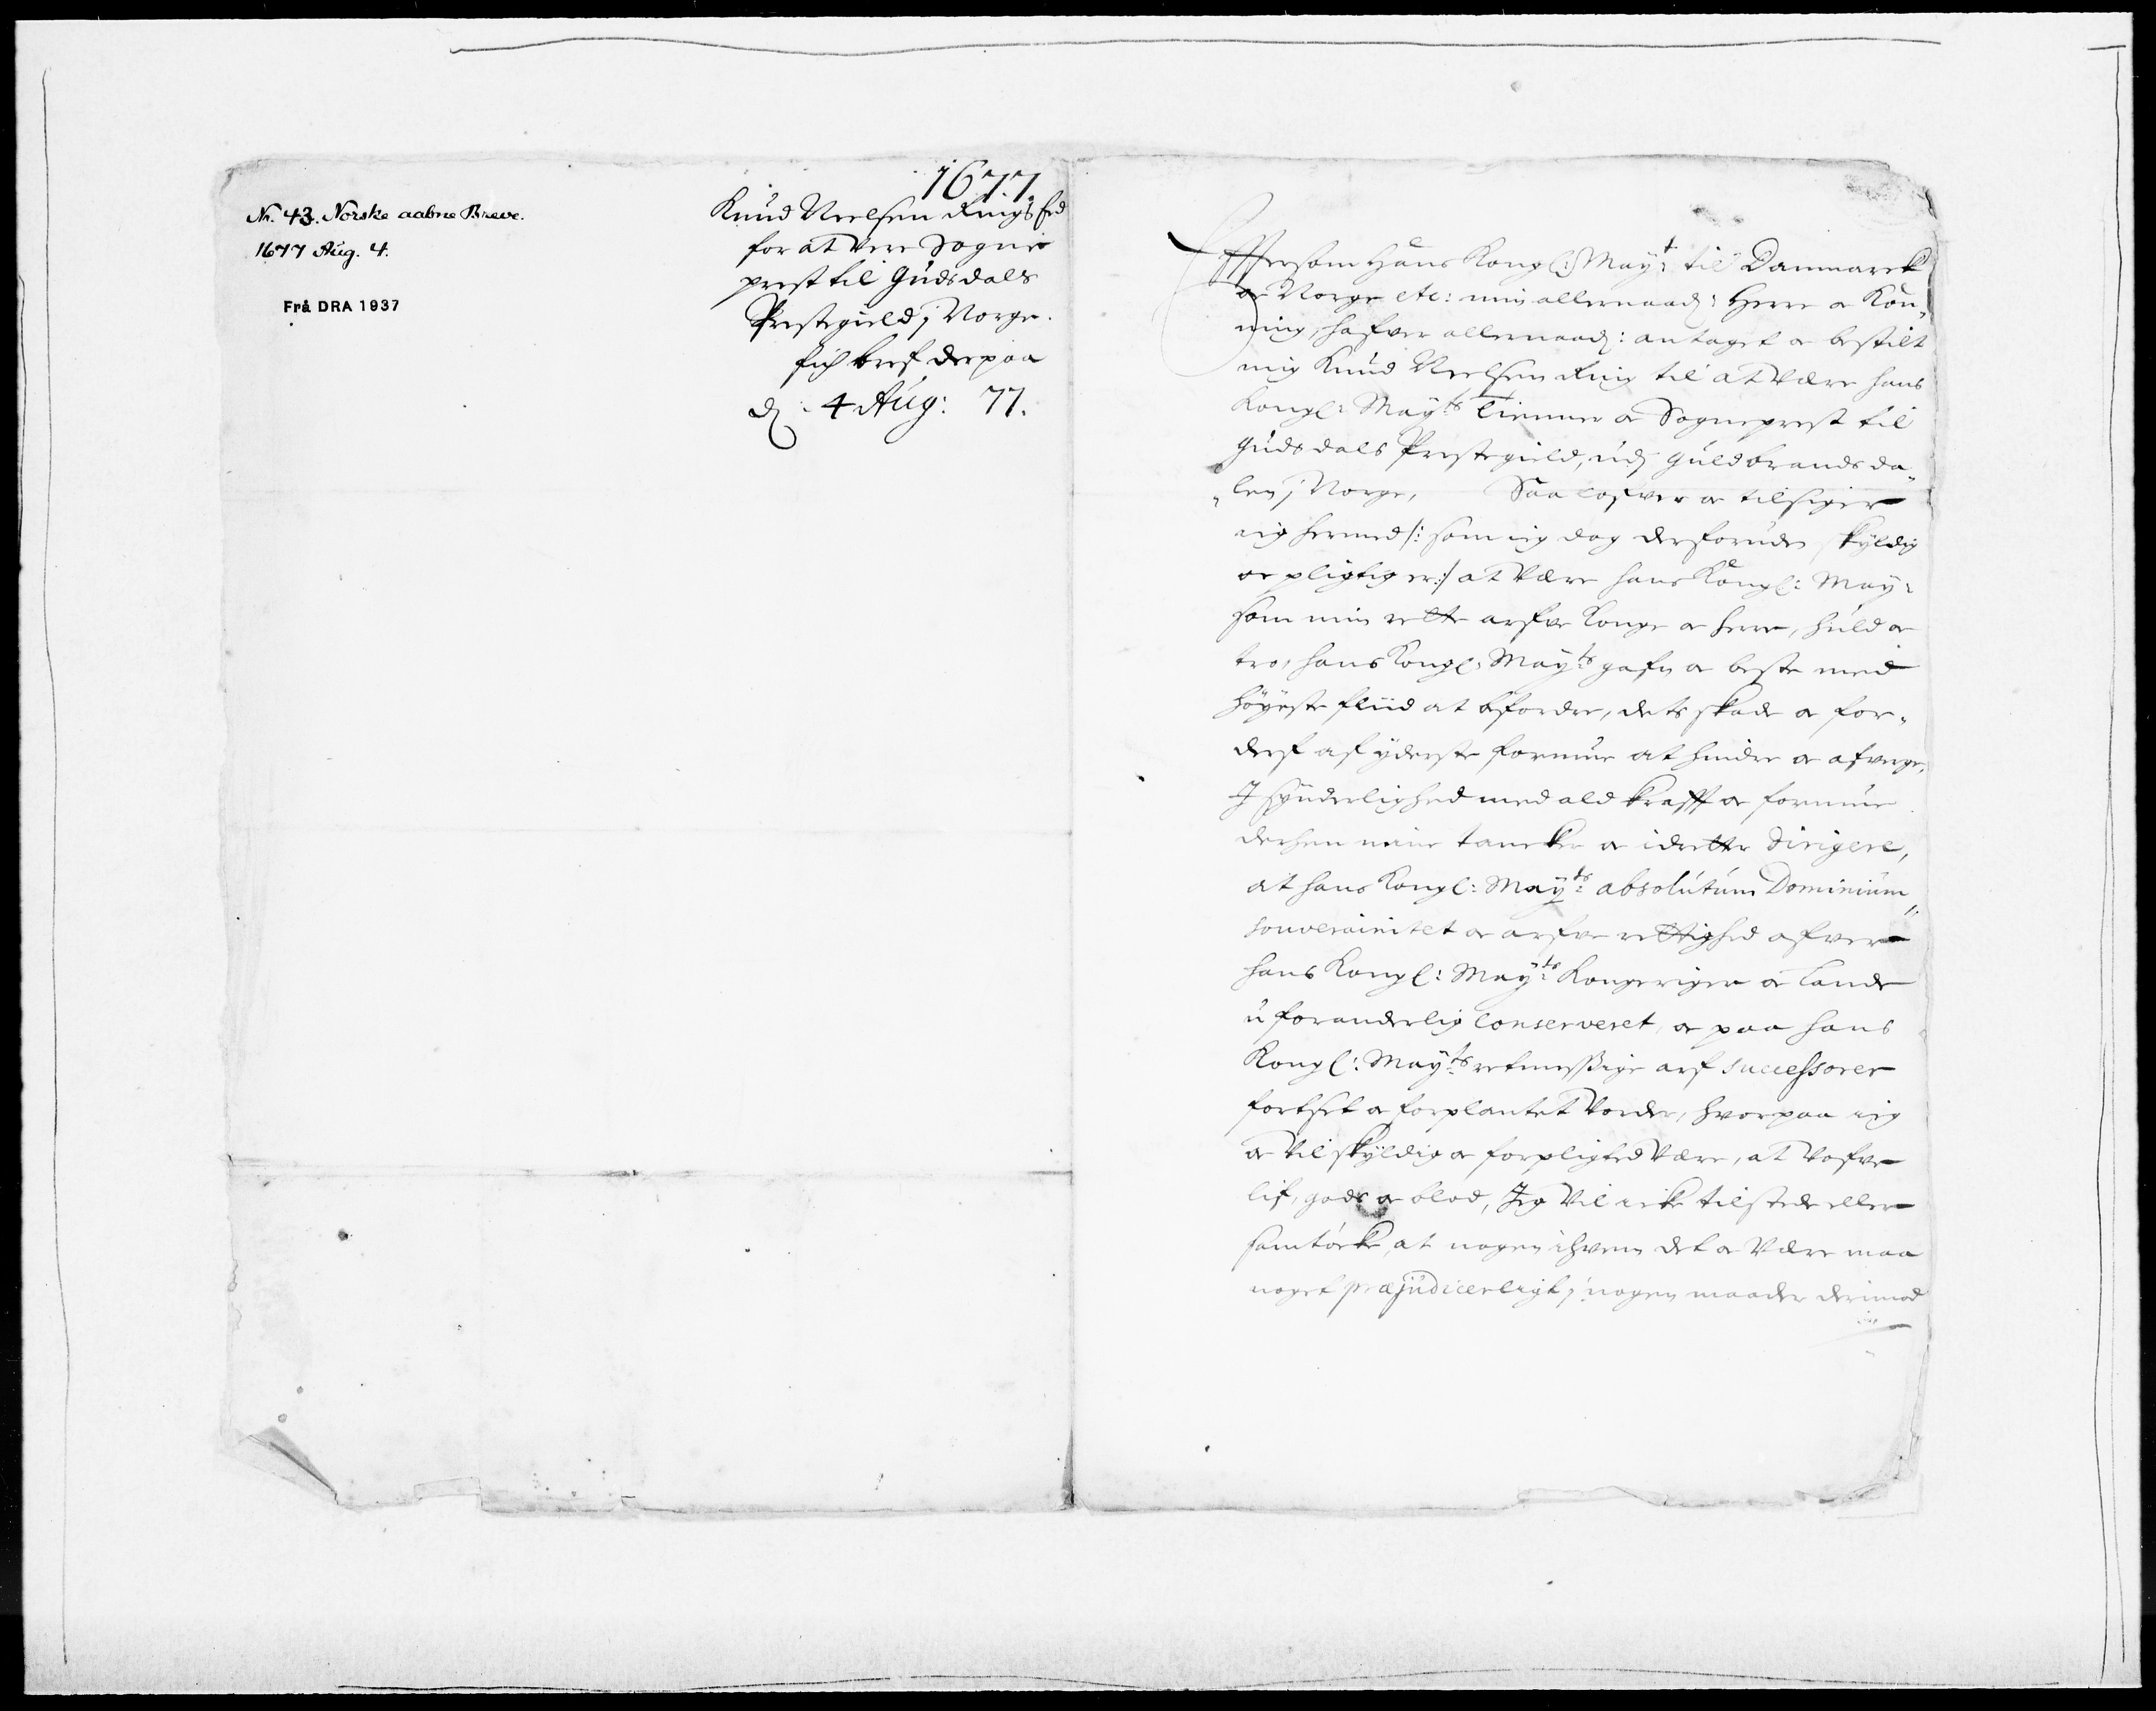 Nr. 43. Norske aabne Breve.
1677 Aug. 4.
Frå DRA 1937
1677.
Knud Nielsen Rings Eed
for at være Sogne
prest til Gudsdals
Prestegield i Norge.
fich bref derpaa
d. 4 Aug: 77.
Effttersom Hans Kongl: Mayt: til Danmarck
oc Norge etc: min allernaad: Herre oc Kon„
ning, hafver allernaad: antaget oc bestilt
mig Knud Nielsen Ring til at være hans
Kongl: Mayts: tienner oc Sogneprest til
Gudsdals Prestegield, udj Guldbrandsda„
„len i Norge, Saa lofver oc tilsiger
ieg hermed /: som ieg dog desforuden skyldig
oc pligtig er :/ at være hans Kongl: May:
som min rette arfve Konge oc herre, huld oc
tro, hans Kongl: Mayts gafn oc beste med
höyeste fliid at befordre, dets skade oc for„
derf af yderste formue at hindre oc afverge,
I synderlighed med ald krafft oc formue
derhen mine tancker oc idrette dirigere,
at hans Kongl: Mayts: absolutum Dominium„
souverainitet oc arfve rettighed ofver
hans Kongl: Mayts: Kongeriger oc Lande
uforanderlig conserveret, oc paa hans
Kongl: Mayts: retmessige arf successorer
fortset oc forplantet vorder, hvorpaa ieg
oc vil skyldig oc forpligted være, at vofve
lif, gods oc blod, Jeg vil icke tilstede eller
samtöcke, at nogen ihvem det oc være maa
noget præjudicerligt, i nogen maader derimod